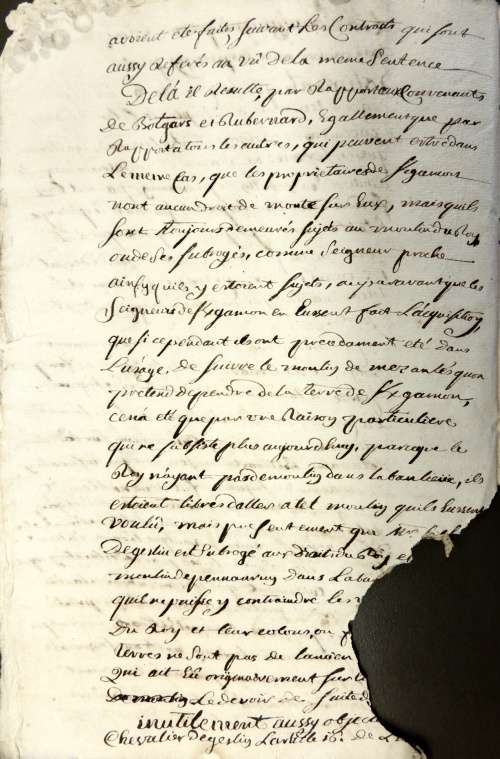 avoient eté faites suivant les Contrats qui sont
aussy referés au vû de la meme Sentence
Dela il resulte, par Rapport aux Convenants
de Botgars et Rubernard, Egallement que par
Rapport a tous les autres, qui peuvent estre dans
Le meme Cas, que les proprietaires de
n'ont aucun droit de moute sur Eux, mais quils
sont toujours demeurés sujets au moulin du Roy
ou de ses subrogés, comme Seigneur proche
ainsy quils y estoient sujets, auparavant que les
Seigneurs de en Eussent fait L'acquisition,
que si cependant ils ont precedament eté dans
L'usage, de suivre le moulin de quon
pretend dependre de la terre de
ce n'a eté que par une Raison particuliere
qui ne subsiste plus aujourdhuy, parceque le
Roy n'ayant pas de moulin dans la banlieüe, ils
estoient libres d'aller a tel moulin quils Eussent
voulu, mais presentement que
Degestin est subrogé aux droits du Roy et
moulin de pennanvuy dans La ban
quil ne puisse y contraindre les
Du Roy et leur colons, ou
terres ne sont pas de l'ancien
Qui ait Eté originairement sur
Le devoir de suite
inutilement aussy objec
Chevalier Degestin L'article 16. de